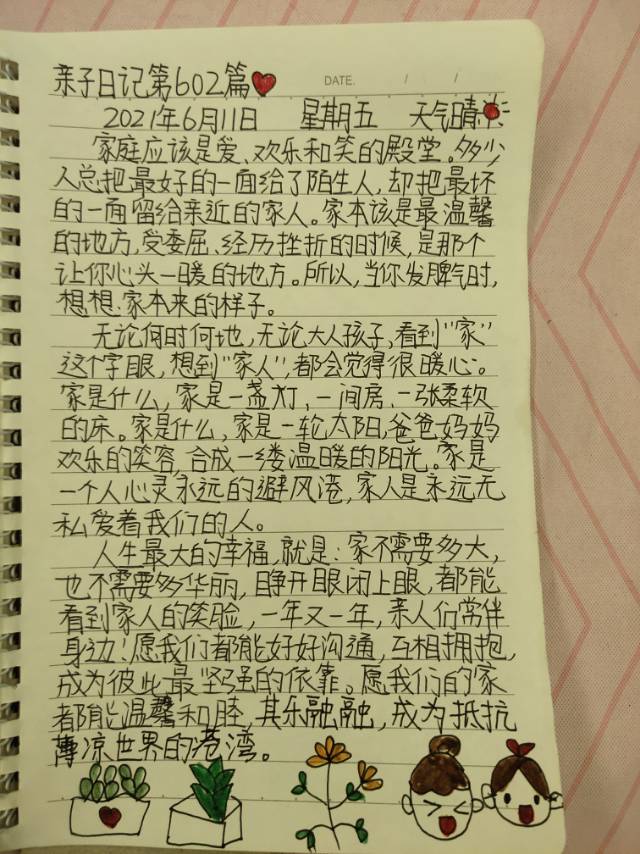 亲子日记第602篇
DATE. / /
2021年6月11日 星期五 天气晴
家庭应该是爱、欢乐和笑的殿堂。多少
人总把最好的一面给了陌生人,却把最坏
的一面留给亲近的家人。家本该是最温馨
的地方,受委屈、经历挫折的时候,是那个
让你心头一暖的地方。所以,当你发脾气时,
想想家本来的样子。
无论何时何地,无论大人孩子,看到"家"
这个字眼,想到"家人",都会觉得很暖心。
家是什么,家是一盏灯、一间房、一张柔软
的床。家是什么,家是一轮太阳,爸爸妈妈
欢乐的笑容,合成一缕温暖的阳光。家是
一个人心灵永远的避风港,家人是永远无
私爱着我们的人。
人生最大的幸福,就是:家不需要多大,
也不需要多华丽,睁开眼闭上眼,都能
看到家人的笑脸,一年又一年,亲人们常伴
身边!愿我们都能好好沟通,互相拥抱,
成为彼此最坚强的依靠。愿我们的家
都能温馨和睦,其乐融融,成为抵抗
薄凉世界的港湾。